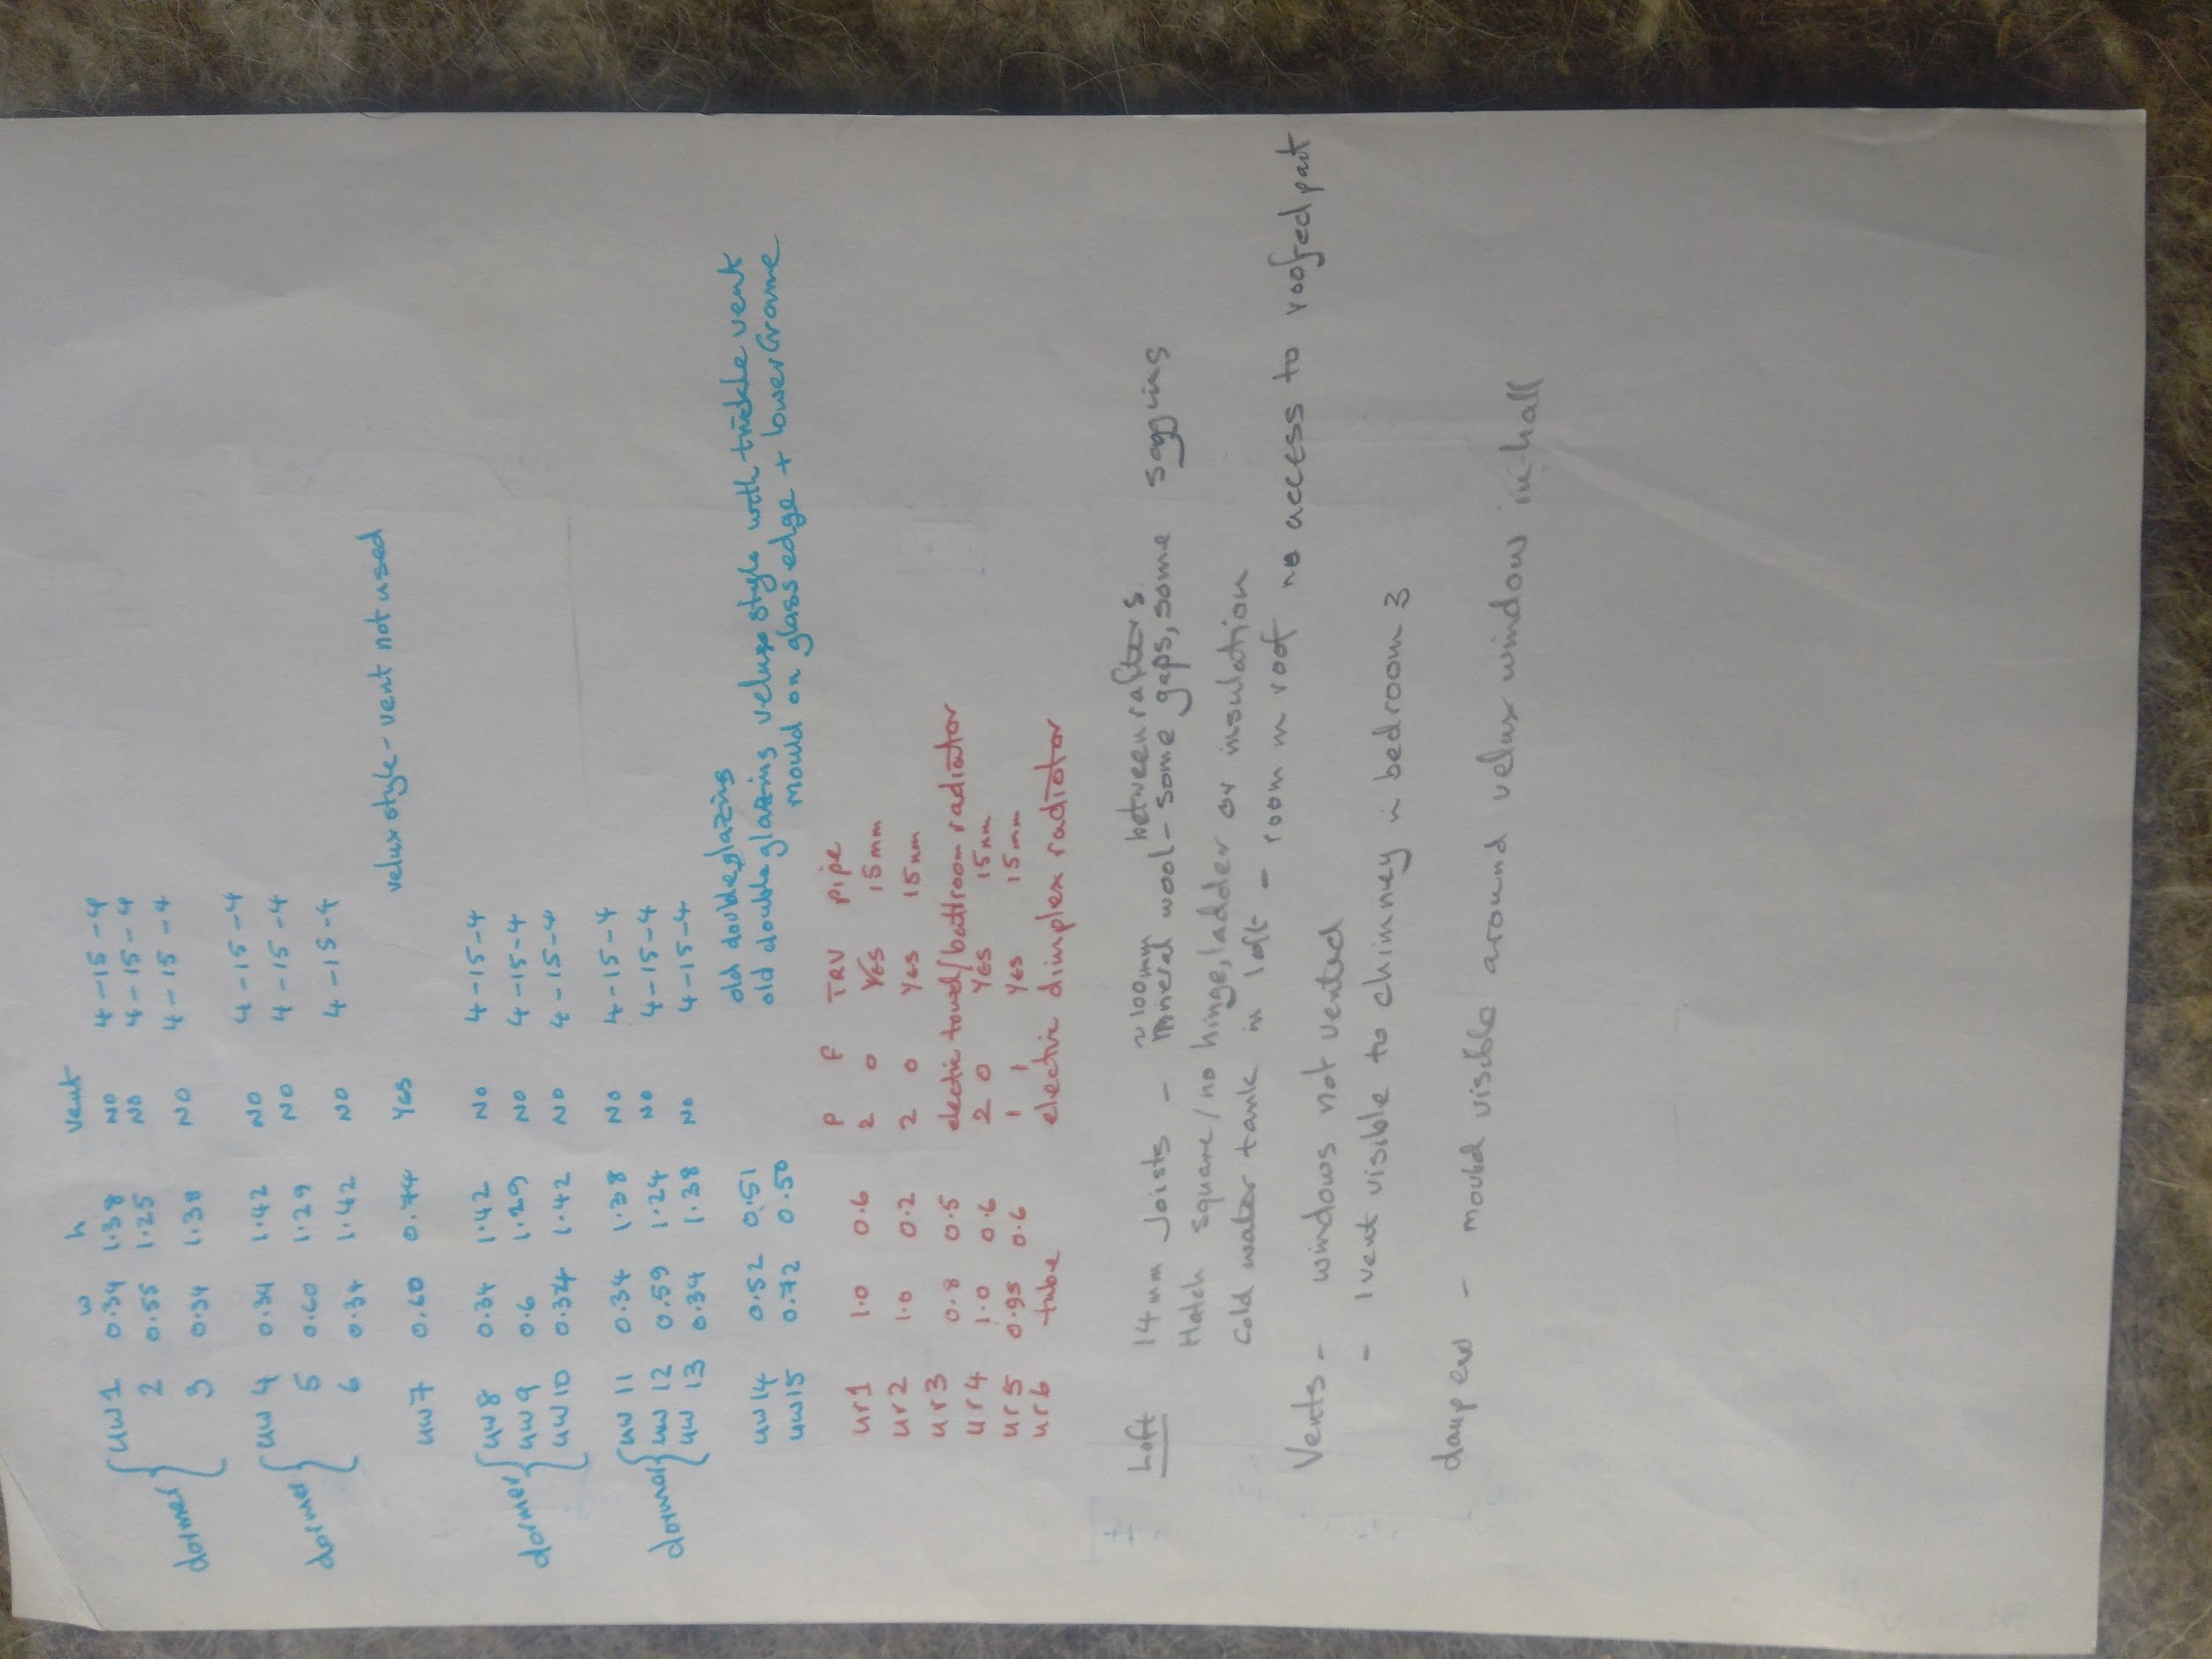 w h vent
dormer { uw 1 0.34 1.38 NO 4-15-4
2 0.55 1.25 NO 4-15-4
3 0.34 1.38 NO 4-15-4
dormer { uw 4 0.34 1.42 NO 4-15-4
5 0.60 1.29 NO 4-15-4
6 0.34 1.42 NO 4-15-4
uw7 0.60 0.74 YES velux style - vent not used
dormer { uw8 0.34 1.42 NO 4-15-4
uw9 0.6 1.29 NO 4-15-4
uw10 0.34 1.42 NO 4-15-4
dormer { uw 11 0.34 1.38 NO 4-15-4
uw 12 0.59 1.24 NO 4-15-4
uw 13 0.34 1.38 NO 4-15-4
uw14 0.52 0.51 old double glazing
uw15 0.72 0.50 old double glazing velux style with trickle vent
mould on glass edge + lower frame
P F TRV pipe
ur1 1.0 0.6 2 0 YES 15mm
ur2 1.0 0.2 2 0 YES 15mm
ur3 0.8 0.5 electric towel/bathroom radiator
ur4 1.0 0.6 2 0 YES 15mm
ur5 0.95 0.6 1 1 YES 15mm
ur6 tube electric dimplex radiator
Loft 14mm Joists - ~100mm between rafters
mineral wool - some gaps, some sagging
Hatch square/no hinge, ladder or insulation
Cold water tank in loft - room in roof no access to roofed part
Vents - windows not vented
- 1 vent visible to chimney in bedroom 3
damp ew - mould visible around velux window in hall